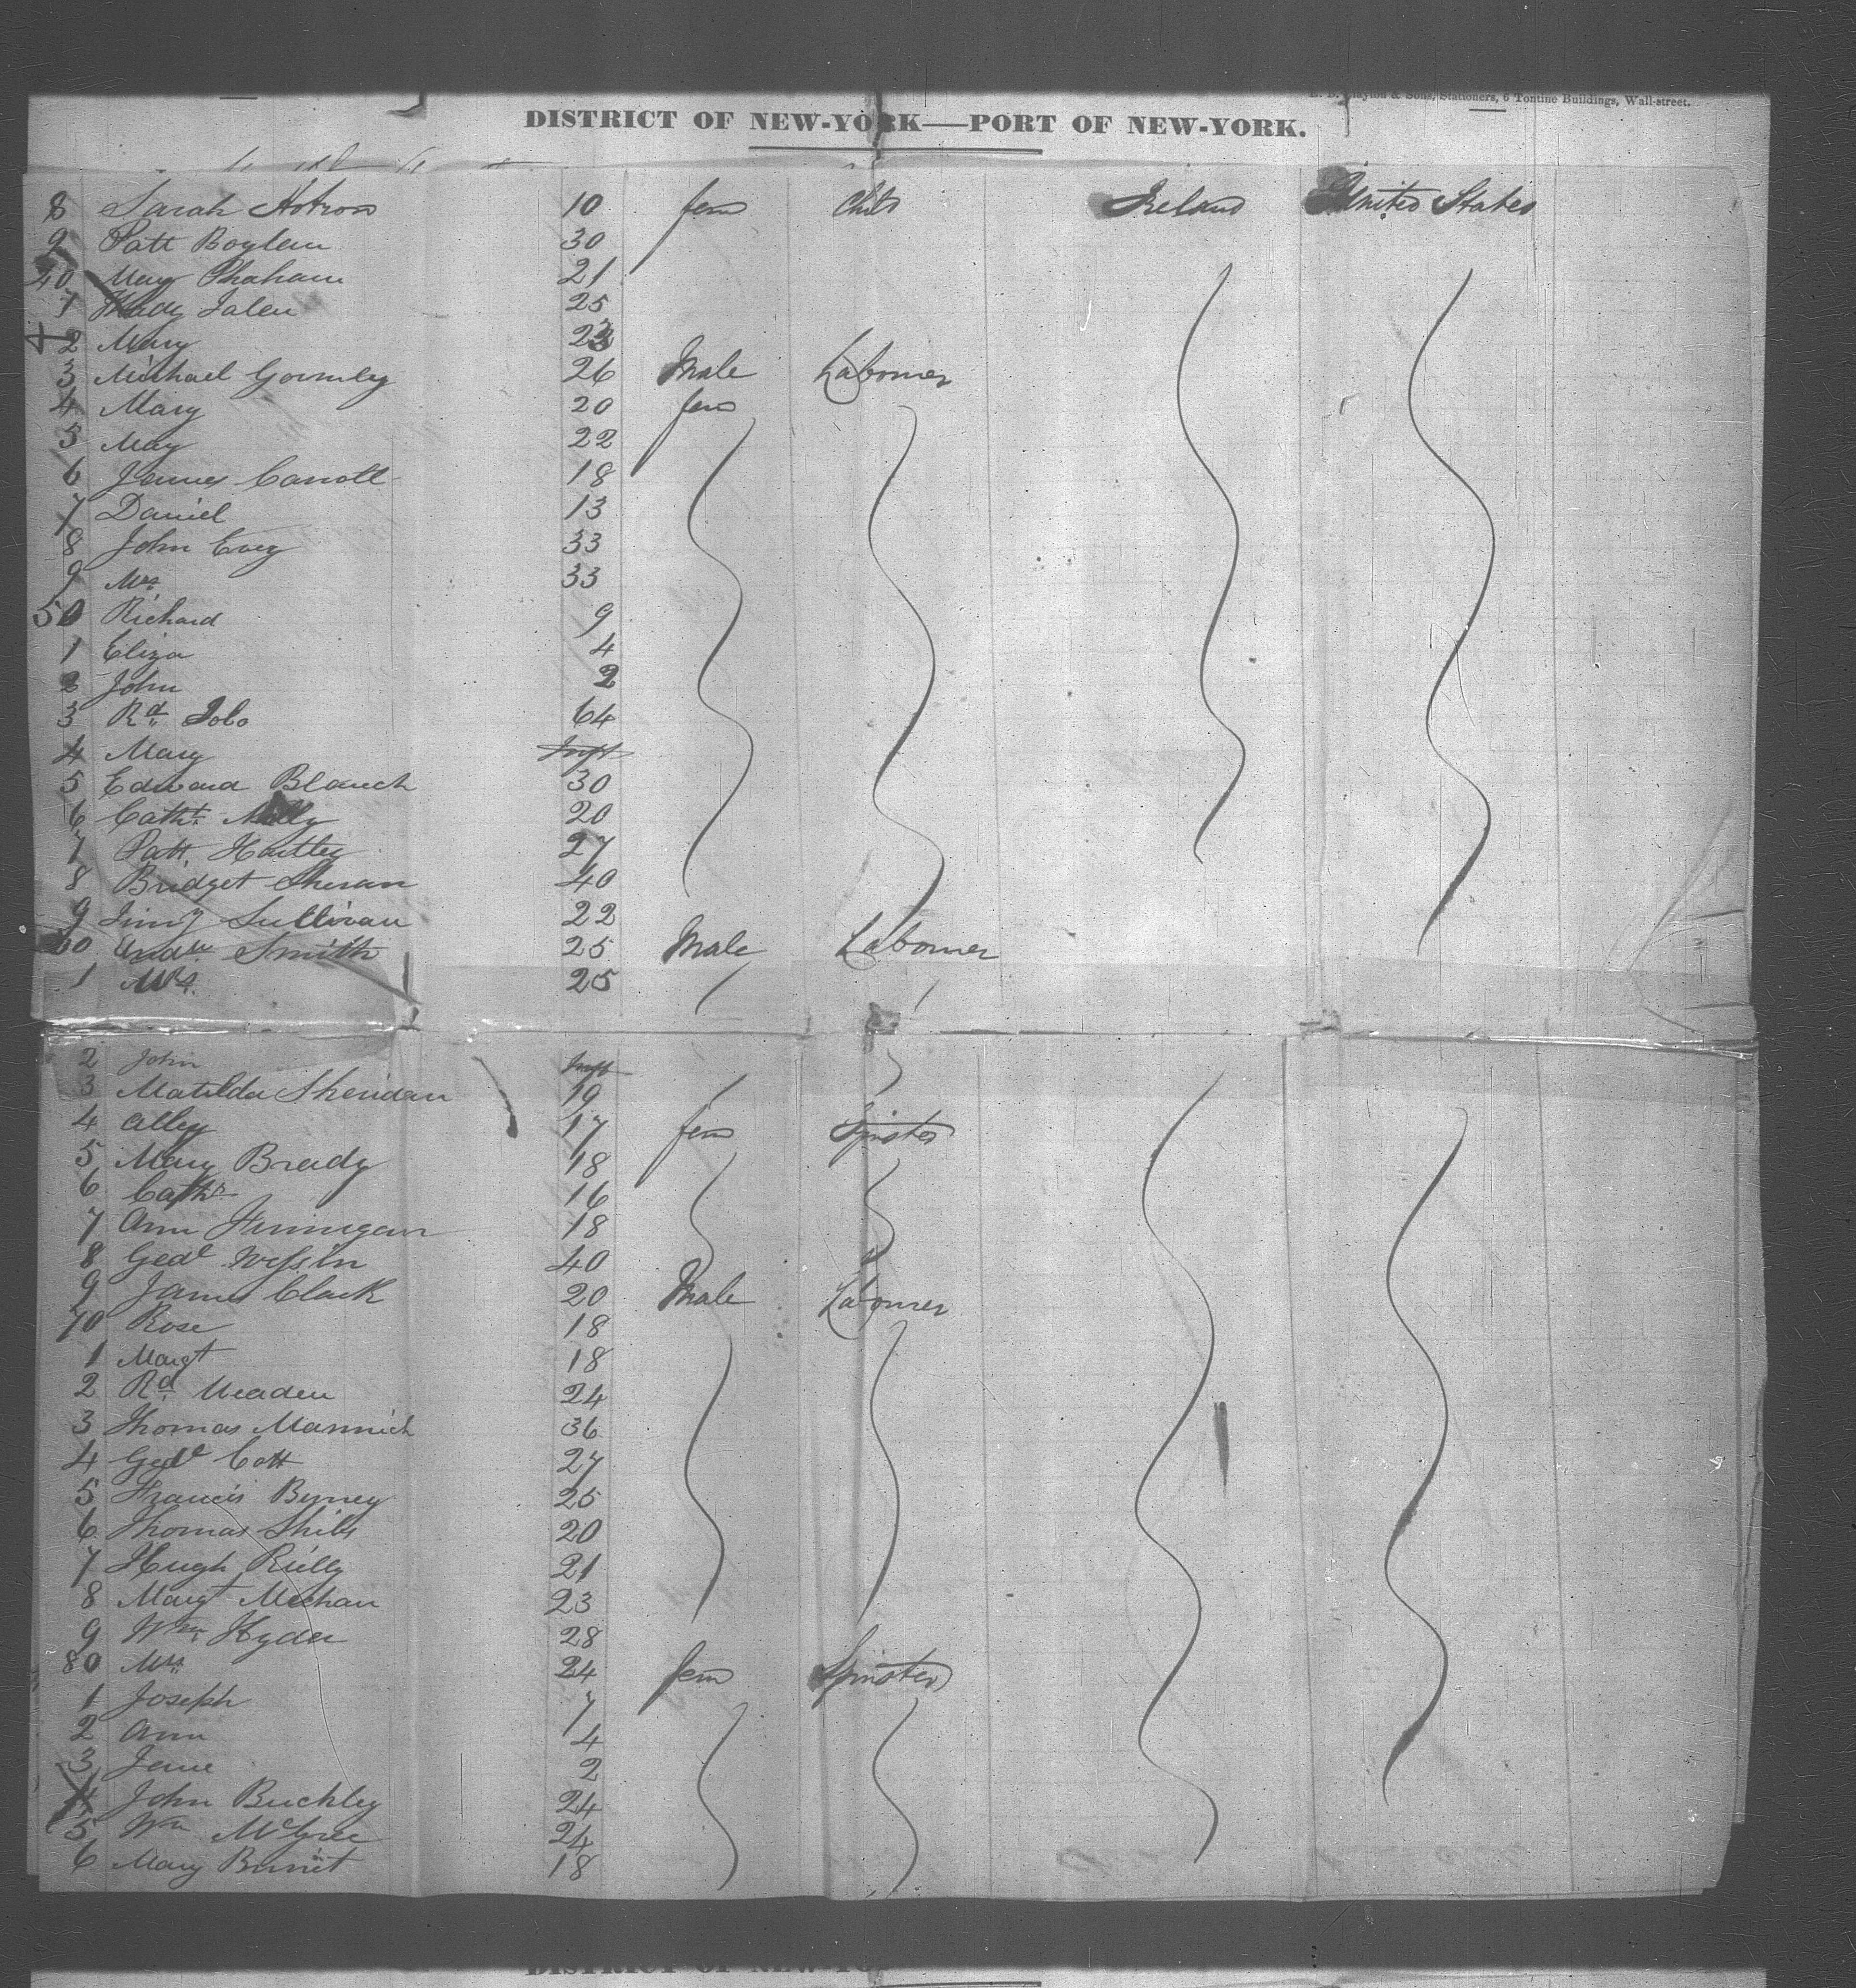 & Sons, Stationers, 6 Tontine Buildings, Wall-street.
DISTRICT OF NEW-YORK—PORT OF NEW-YORK.
8 Sarah 10 fem Child Ireland United States
9 Patt Boylan 30
40 Mary 21
1 25
2 Mary 23
3 Michael Gormley 26 Male Labourer
4 Mary 20 fem
5 May 22
6 James Carroll 18
7 Daniel 13
8 John 33
9 Mrs 33
50 Richard 9
1 Eliza 4
2 John 2
3 Rd 64
4 Mary Inft
5 Edward Blanch 30
6 Cathe 20
7 Patt Hartley 27
8 Bridget Sheran 40
9 Sullivan 22
60 Andw Smith 25 Male Labourer
1 Mrs 25
2 John Inft
3 Matilda Sheridan 19
4 Alley 17 fem Spinster
5 Mary Brady 18
6 Cathe 16
7 Ann Finnegan 18
8 40
9 James Clark 20 Male Labourer
70 Rose 18
1 Margt 18
2 Rd Meaden 24
3 Thomas Mannich 36
4 Cott 27
5 Francis Byrney 25
6 Thomas Shils 20
7 Hugh Reilly 21
8 Margt Meehan 23
9 Wm Hyder 28
80 Mrs 24 fem Spinster
1 Joseph 7
2 Ann 4
3 Jane 2
4 John Buckley 24
5 Wm McGree 24
6 Mary 18
DISTRICT OF NEW-YO